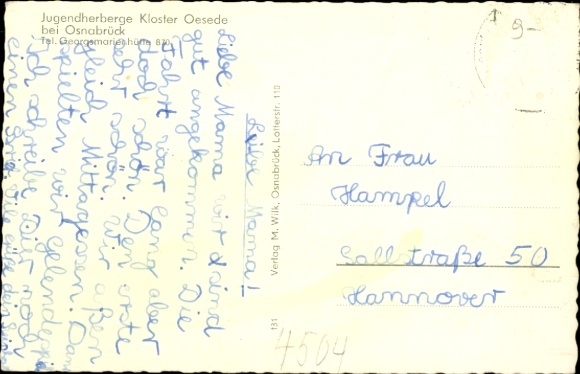 Jugendherberge Kloster Oesede
bei Osnabrück
Tel. Georgsmarienhütte 830
Liebe Mama!
Liebe Mama wir sind
gut angekommen. Die
Fahrt war lang aber
doch schön. Der erste
sehr schön. Wir aßen
gleich Mittagessen. Dann
spielten wir Gelände
Ich schreibe Dir noch
einen
Verlag M. Wilk, Osnabrück, Lotterstr. 110
131
An Frau
Hampel
Sallstraße 50
Hannover
9-
4504